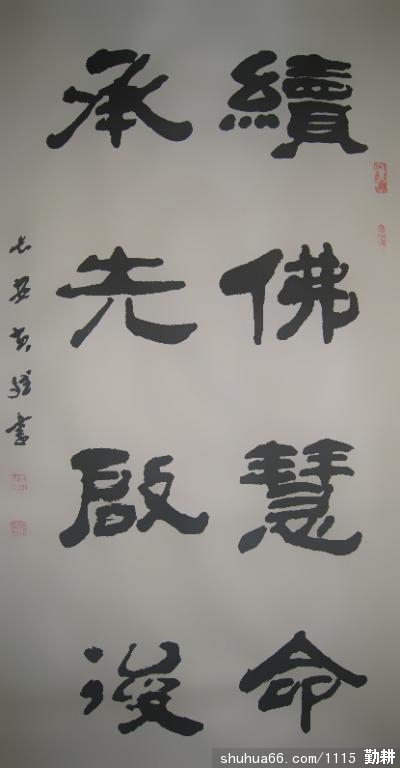 續佛慧命
承先啟後
长安書
shuhua66.com/1115 勤耕